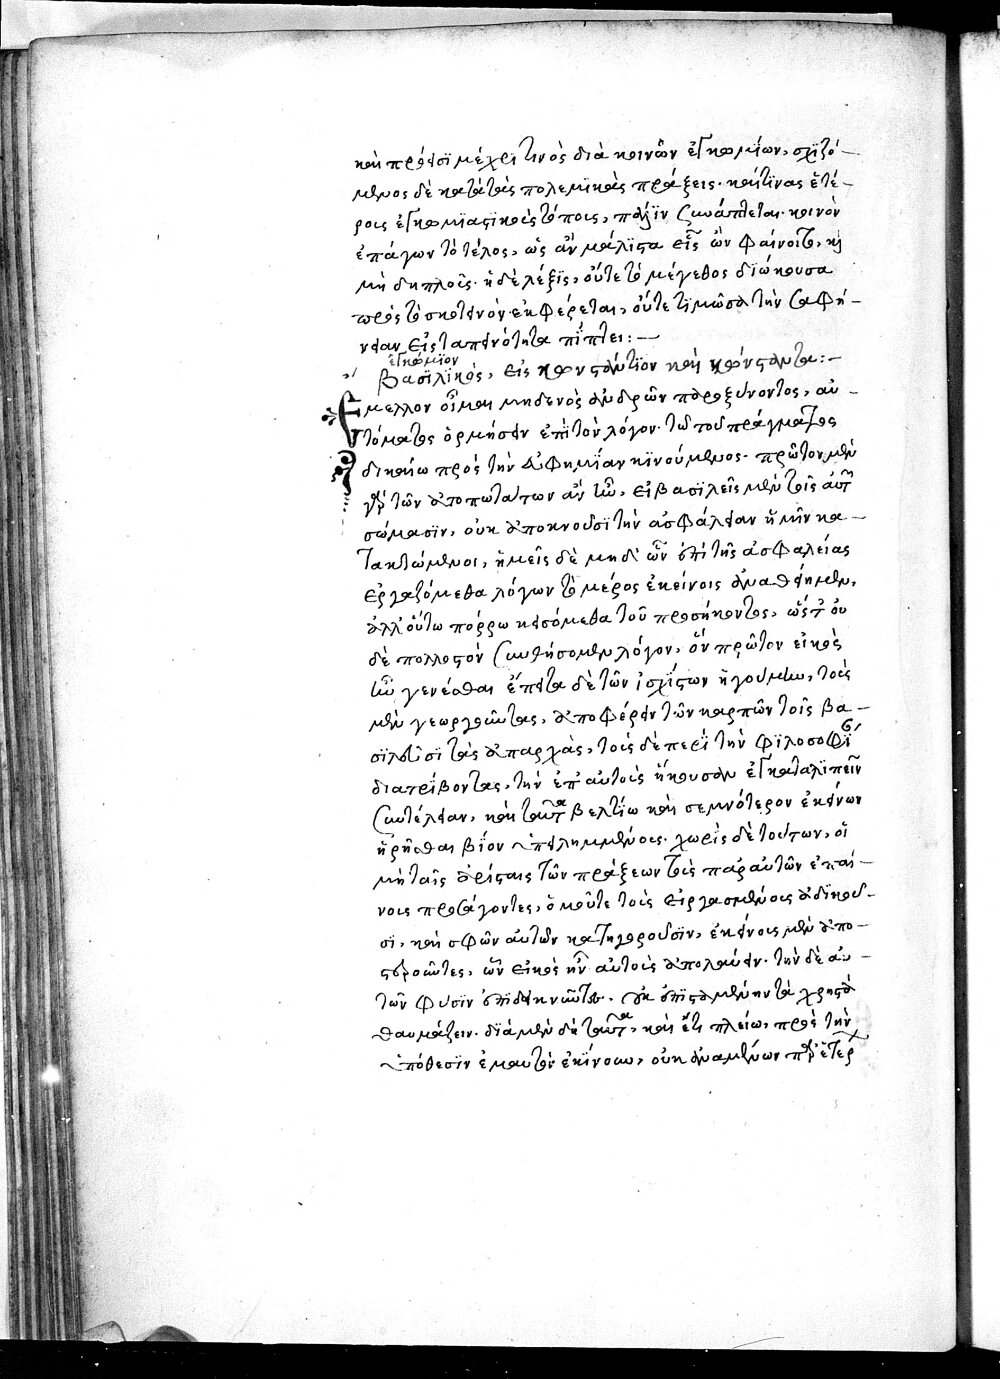 καὶ πρόεισϊ μέχρϊ τινὸς διὰ κοινῶν ἐγκωμΐων, σχϊζό-
μενος δὲ κατὰ τὰς πολεμϊκὰς πράξεις· καί τϊνας ἑτέ-
ροις ἐγκωμϊαστϊκοῖς τόποις, πάλϊν συνάπτεται· κοινὸν
ἐπάγων τὸ τέλος, ὡς ἂν μάλϊστα εἷς ὢν φαίνοιτο, καὶ
μὴ δϊπλοῦς· ἡ δὲ λέξϊς, οὔτε τὸ μέγεθος διώκουσα
πρὸς τὸ σκοτεινὸν ἐκφέρεται, οὔτε τϊμῶσα τὴν σαφή-
νειαν εἰς ταπεινότητα πΐπτει:—
ἐγκώμϊον
Βασϊλϊκὸς, εἰς κωνστάντϊον καὶ κώνσταντα:—
Ἔμελλον οἶμαι μηδενὸς ἀνδρῶν παροξύνοντος, αὐ-
τόματος ὁρμήσειν ἐπὶ τὸν λόγον· τῶ τοῦ πράγματος
δικαίω πρὸς τὴν εὐφημΐαν κϊνούμενος· πρῶτον μὲν
γὰρ τῶν ἀτοπωτάτων ἂν ἦν, εἰ βασϊλεῖς μὲν τοῖς αὑτῶν
σώμασϊν, οὐκ ἀποκνοῦσϊ τὴν ἀσφάλειαν ἡμῖν κα-
τακτώμενοι, ἡμεῖς δὲ μηδ' ὧν ἐπὶ τῆς ἀσφαλείας
ἐργαζόμεθα λόγων τὸ μέρος ἐκείνοις ἀναθείημεν,
ἀλλ' οὕτω πόρρω κεισόμεθα τοῦ προσήκοντος, ὥστ' οὐ
δὲ πολλοστὸν συνθήσομεν λόγον, ὃν πρῶτον εἰκὸς
ἦν γενέσθαι ἔπειτα δὲ τῶν αἰσχΐστων ἡγούμην, τοὺς
μὲν γεωργοῦντας, ἀποφέρειν τῶν καρπῶν τοῖς βα-
σϊλεῦσϊ τὰς ἀπαρχὰς, τοὺς δὲ περὶ τὴν φϊλοσοφΐαν
διατρΐβοντας, τὴν ἐπ' αὐτοὺς ἥκουσαν ἐγκαταλϊπεῖν
συντέλειαν, καὶ ταῦτα βελτίω καὶ σεμνότερον ἐκείνων
ἡρῆσθαι βΐον ὑπειλημμένους· χωρὶς δὲ τούτων, οἱ
μὴ ταῖς ἀρίσταις τῶν πράξεων τοὺς παρ' αὐτῶν ἐπαί-
νοις προσάγοντες, ὁμοῦ τε τοὺς εἰργασμένους ἀδϊκοῦ-
σϊ, καὶ σφῶν αὐτῶν κατηγοροῦσϊν, ἐκείνους μὲν ἀπο-
στεροῦντες, ὧν εἰκὸς ἦν αὐτοὺς ἀπολαύειν· τὴν δὲ αὑ-
τῶν φύσϊν ἐπϊδεικνῦντες· οὐκ ἐπϊσταμένην τὰ χρηστὰ
θαυμάζειν· διὰ μὲν δὴ ταῦτα, καὶ ἔτϊ πλείω, πρὸς τὴν
ὑπόθεσϊν ἐμαυτὸν ἐκΐνουν, οὐκ ἀναμένων παρ' ἑτέρων